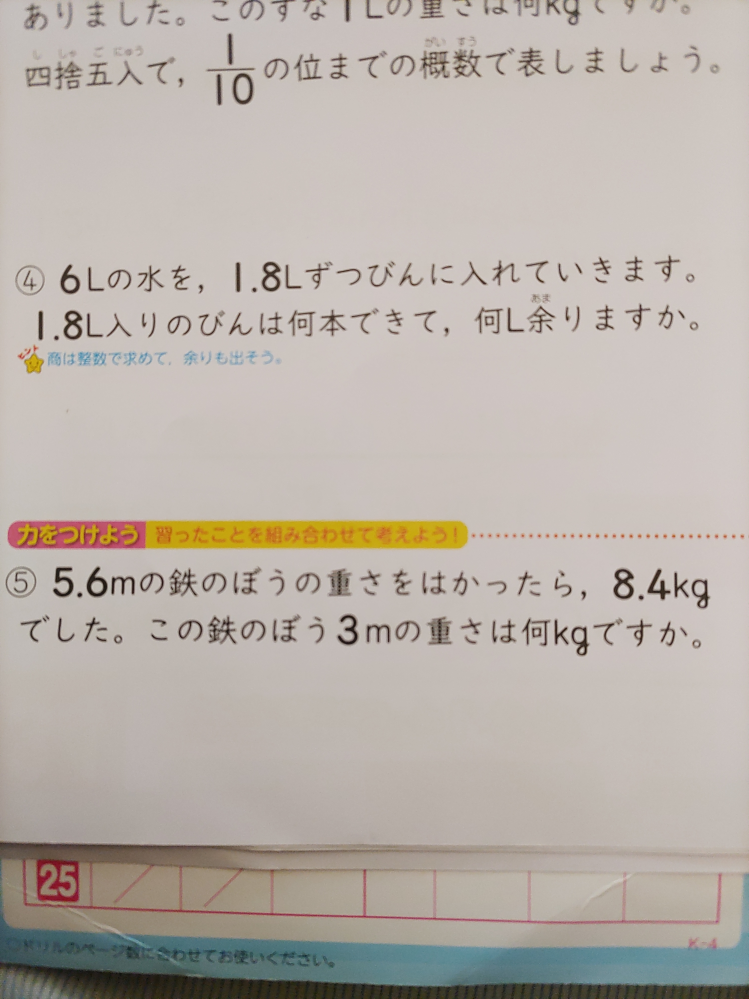 ありました。このすな1Lの重さは何kgですか。
し しゃ ご にゅう がい すう
四捨五入で，1/10の位までの概数で表しましょう。
④ 6Lの水を，1.8Lずつびんに入れていきます。
あま
1.8L入りのびんは何本できて，何L余りますか。
ヒント 商は整数で求めて，余りも出そう。
力をつけよう 習ったことを組み合わせて考えよう！
⑤ 5.6mの鉄のぼうの重さをはかったら，8.4kg
でした。この鉄のぼう3mの重さは何kgですか。
25
K-4
○ドリルのページ数に合わせてお使いください。